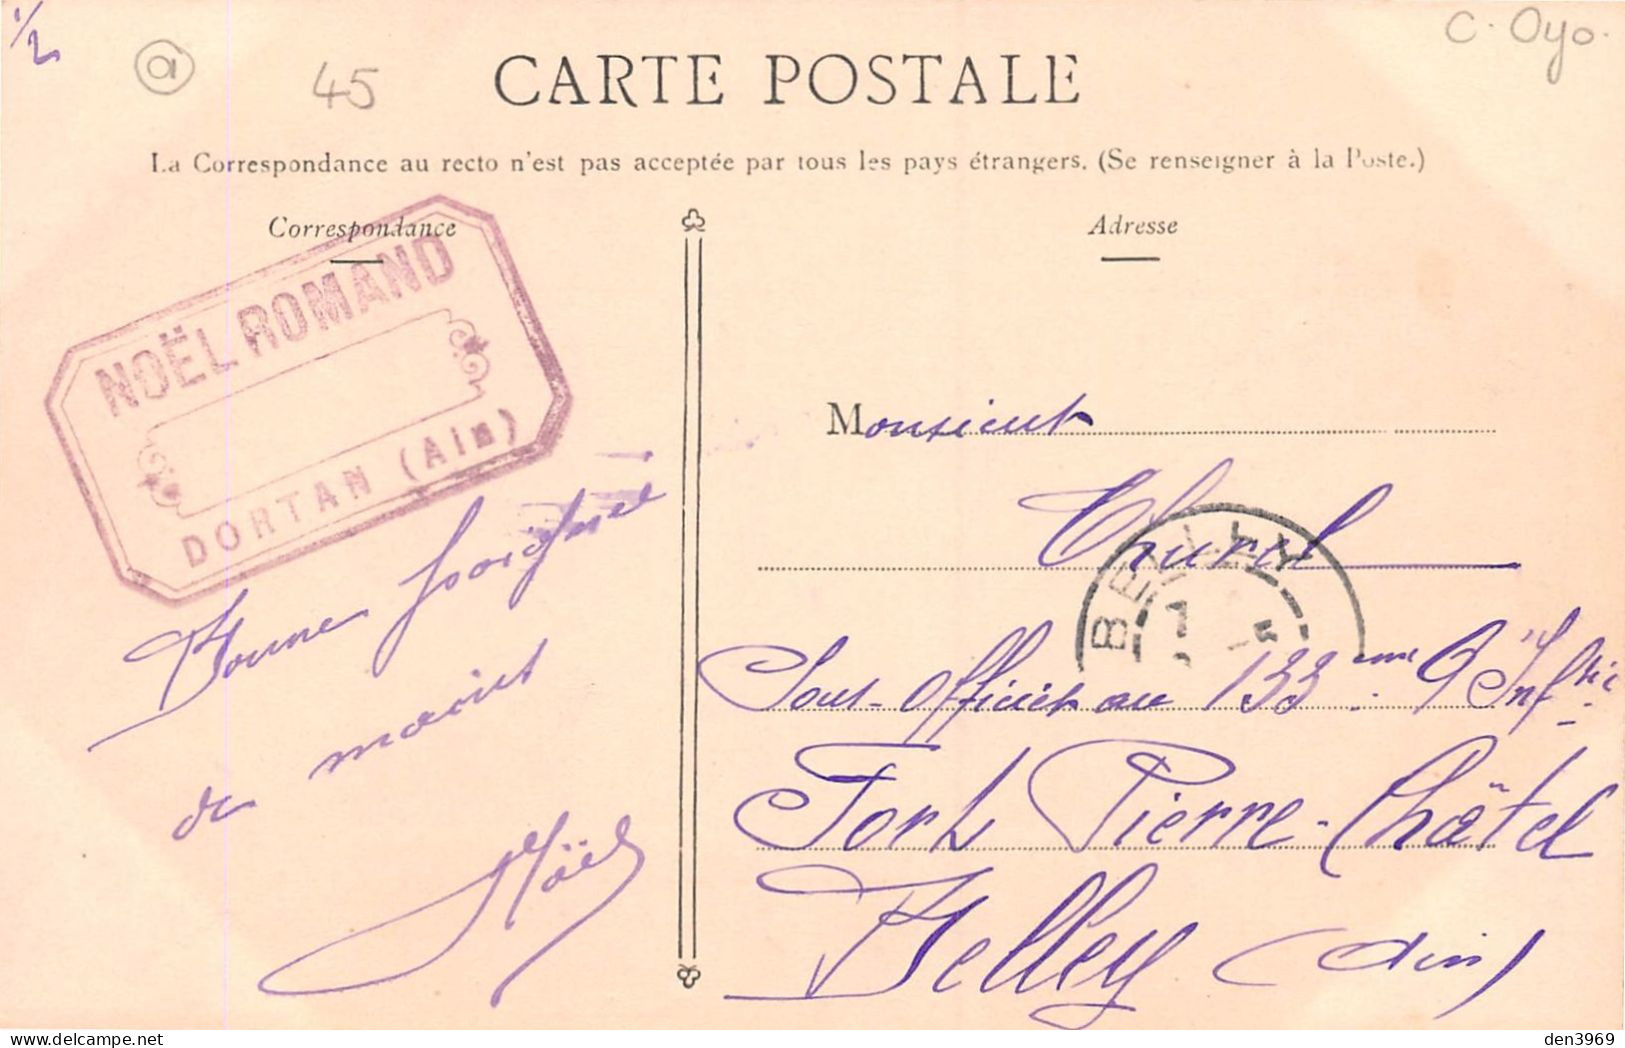 1/2
a
45
C. Oyo.
CARTE POSTALE
La Correspondance au recto n'est pas acceptée par tous les pays étrangers. (Se renseigner à la Poste.)
Correspondance
NOËL ROMAND
DORTAN (Ain)
Bonne poignée
de mains
Noël
Adresse
Monsieur
Thurel
BELLEY
Sous-officier au 133ème d'Infrie
Fort Pierre-Châtel
Belley (Ain)
den3969